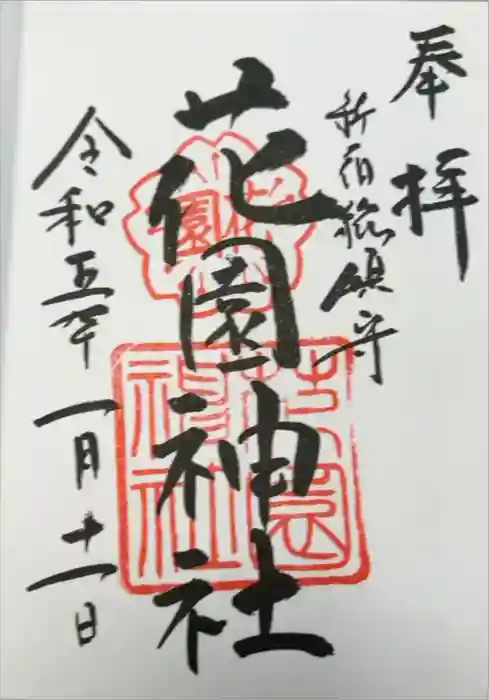 奉拝
新宿総鎮守
花園神社
令和五年一月十一日
花園
花園神社